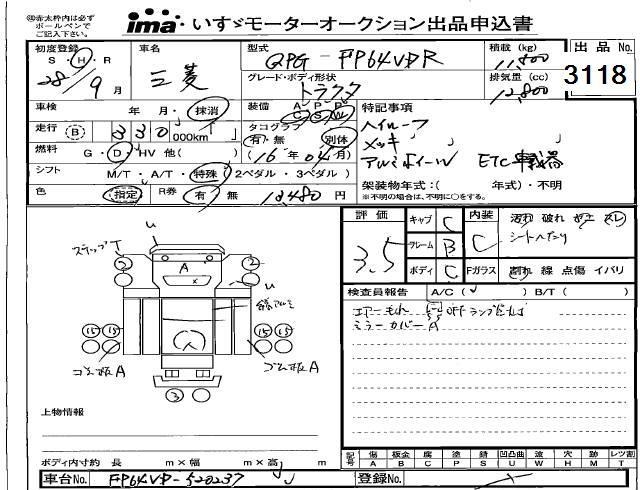 ◎赤太枠内は必ず
ボールペンで
ご記入下さい。
ima いすゞモーターオークション出品申込書
初度登録 車名 型式 積載(kg) 出品No.
S・H・R 28/9月 三菱 QPG-FP64VDR 11,800 3118
グレード・ボディ形状 トラクタ 排気量(cc) 12,800
車検 年 月・抹消 装備 A P P C S W 特記事項
走行 B 330,000km タコグラフ 有・無 別体 ハイルーフ
燃料 G・D・HV 他( ) (16年04月) メッキ
アルミホイール ETC 車載器
シフト M/T・A/T・特殊(2ペダル・3ペダル) 架装物年式:( 年式)・不明
色 指定 R券 有・無 12,480円 ※不明の場合は、不明に○をする。
評価 キャブ C 内装 汚れ 破れ コゲ スレ
3.5 フレーム B C シートへたり
ボディ C Fガラス 割れ 線 点傷 イバリ
検査員報告 A/C( ) B/T( )
エアーもれ
ミラーカバーA
ステップT U
A
2 2
U
15 15 15 15
ゴム板A ゴム板A
3
上物情報
記号 傷 板金 腐 塗 錆 凹凸曲 波 穴 跡 レンズ割
A B C P S U W H M T
ボディ内寸約 長 m×幅 m×高 m
車台No. FP64VD-520237 登録No.